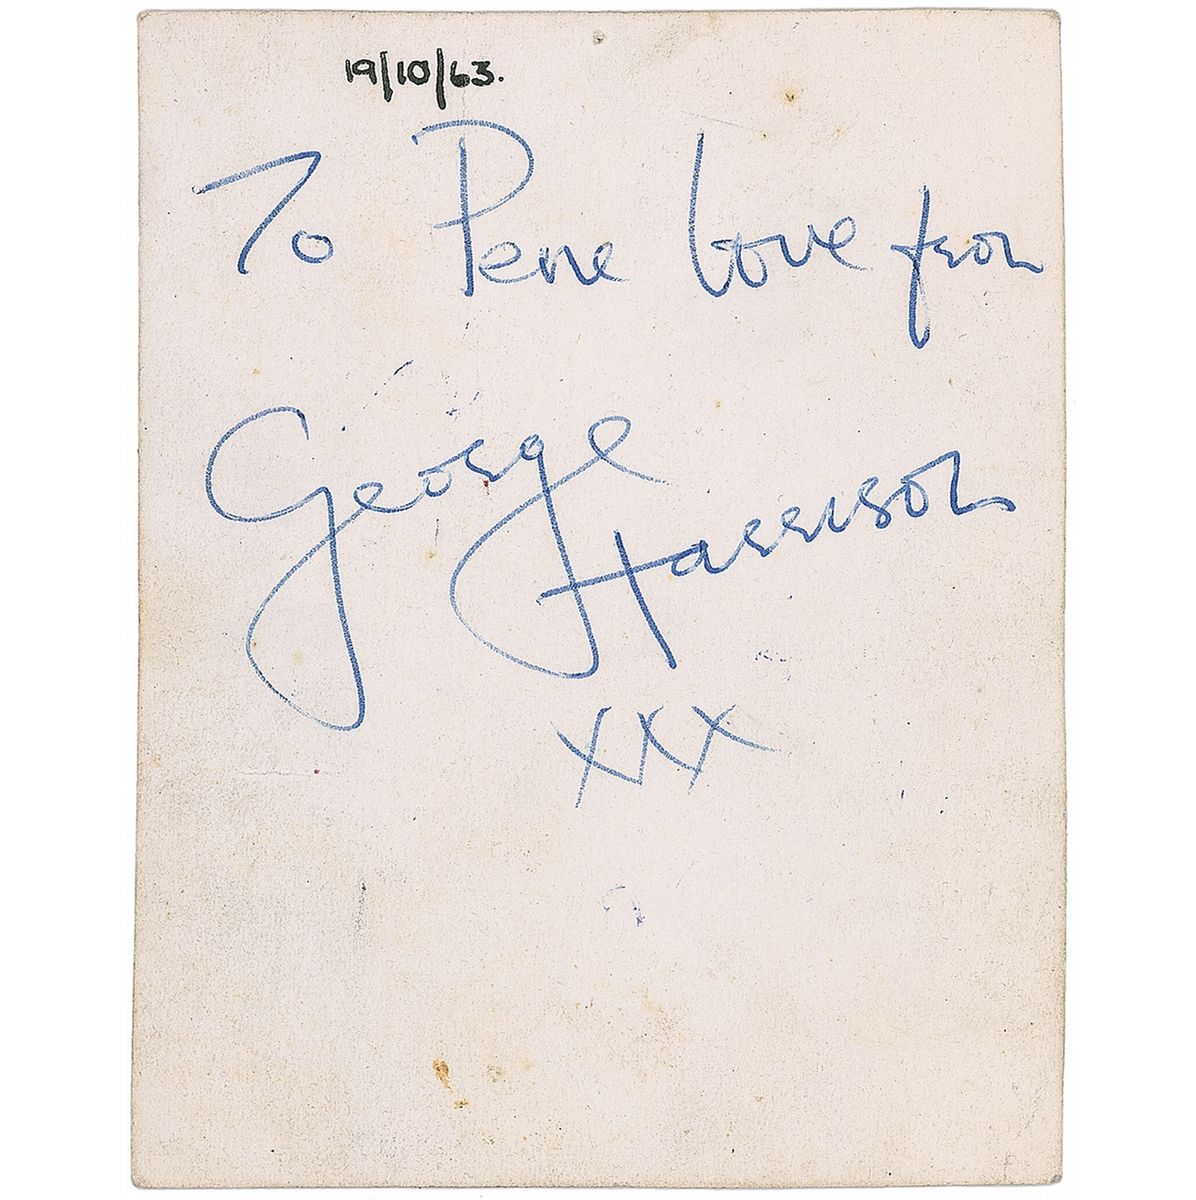 19/10/63.
To Pene love from
George Harrison
xxx